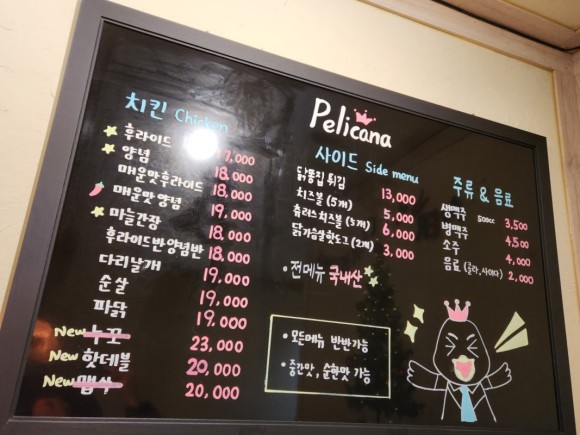 Pelicana
치킨 Chicken
후라이드 7,000
양념 18,000
매운맛후라이드 18,000
매운맛양념 19,000
마늘간장 18,000
후라이드반양념반 18,000
다리날개 19,000
순살 19,000
파닭 19,000
New 23,000
New 핫데블 20,000
New 20,000
사이드 Side menu
닭똥집 튀김 13,000
치즈볼 (5개) 5,000
츄러스치즈볼 (5개) 6,000
닭가슴살핫도그 (2개) 3,000
• 전메뉴 국내산
• 모든메뉴 반반가능
• 중간맛, 순한맛 가능
주류 & 음료
생맥주 500cc 3,500
병맥주 4,500
소주 4,000
음료 (콜라,사이다) 2,000